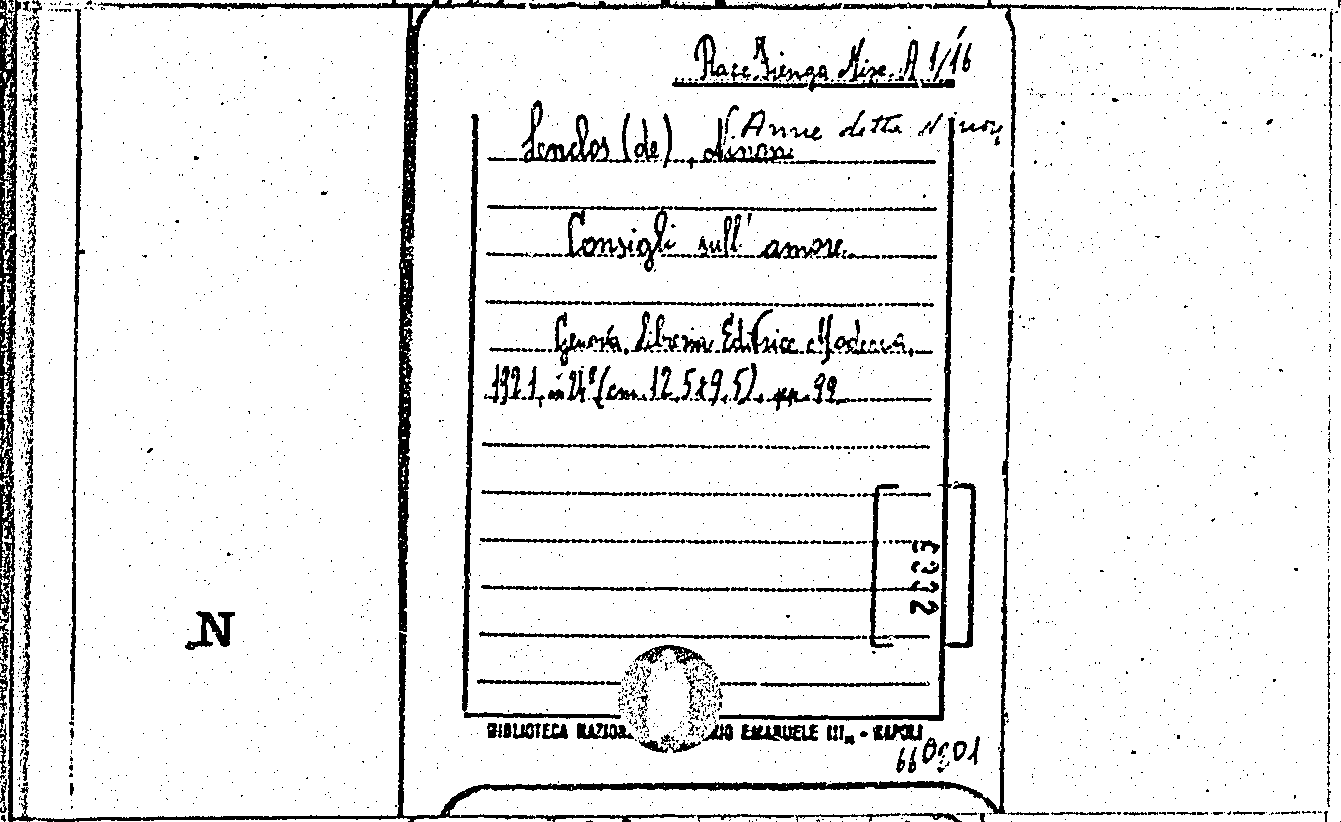 Racc. Fienga Misc. A 1/16
Anne detta Ninon,
Lenclos (de), Ninon
Consigli sull' amore.
Genova, Libreria Editrice Moderna,
1921, in 24° (cm. 12,5x9,5), pp. 99
5332
N
BIBLIOTECA EMANUELE III - NAPOLI